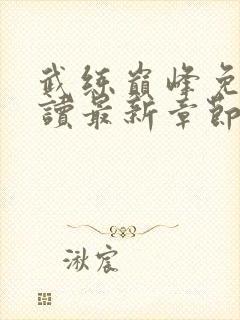 武练巅峰免
讀最新章節
湫宸